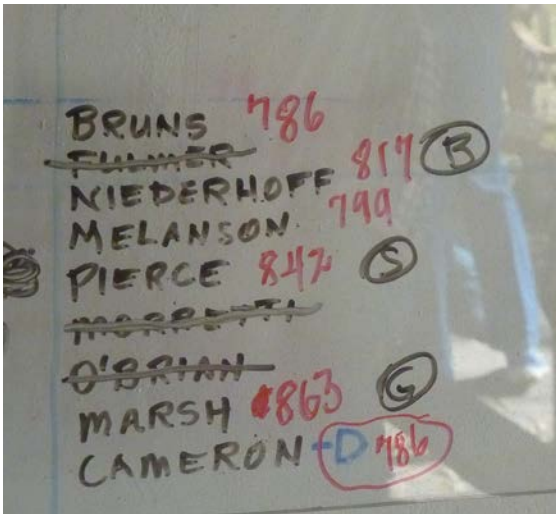 BRUNS 786
FULMER
NIEDERHOFF 817 B
MELANSON 799
PIERCE 842 S
MORRETTI
O'BRIAN
MARSH 863 G
CAMERON -D 786